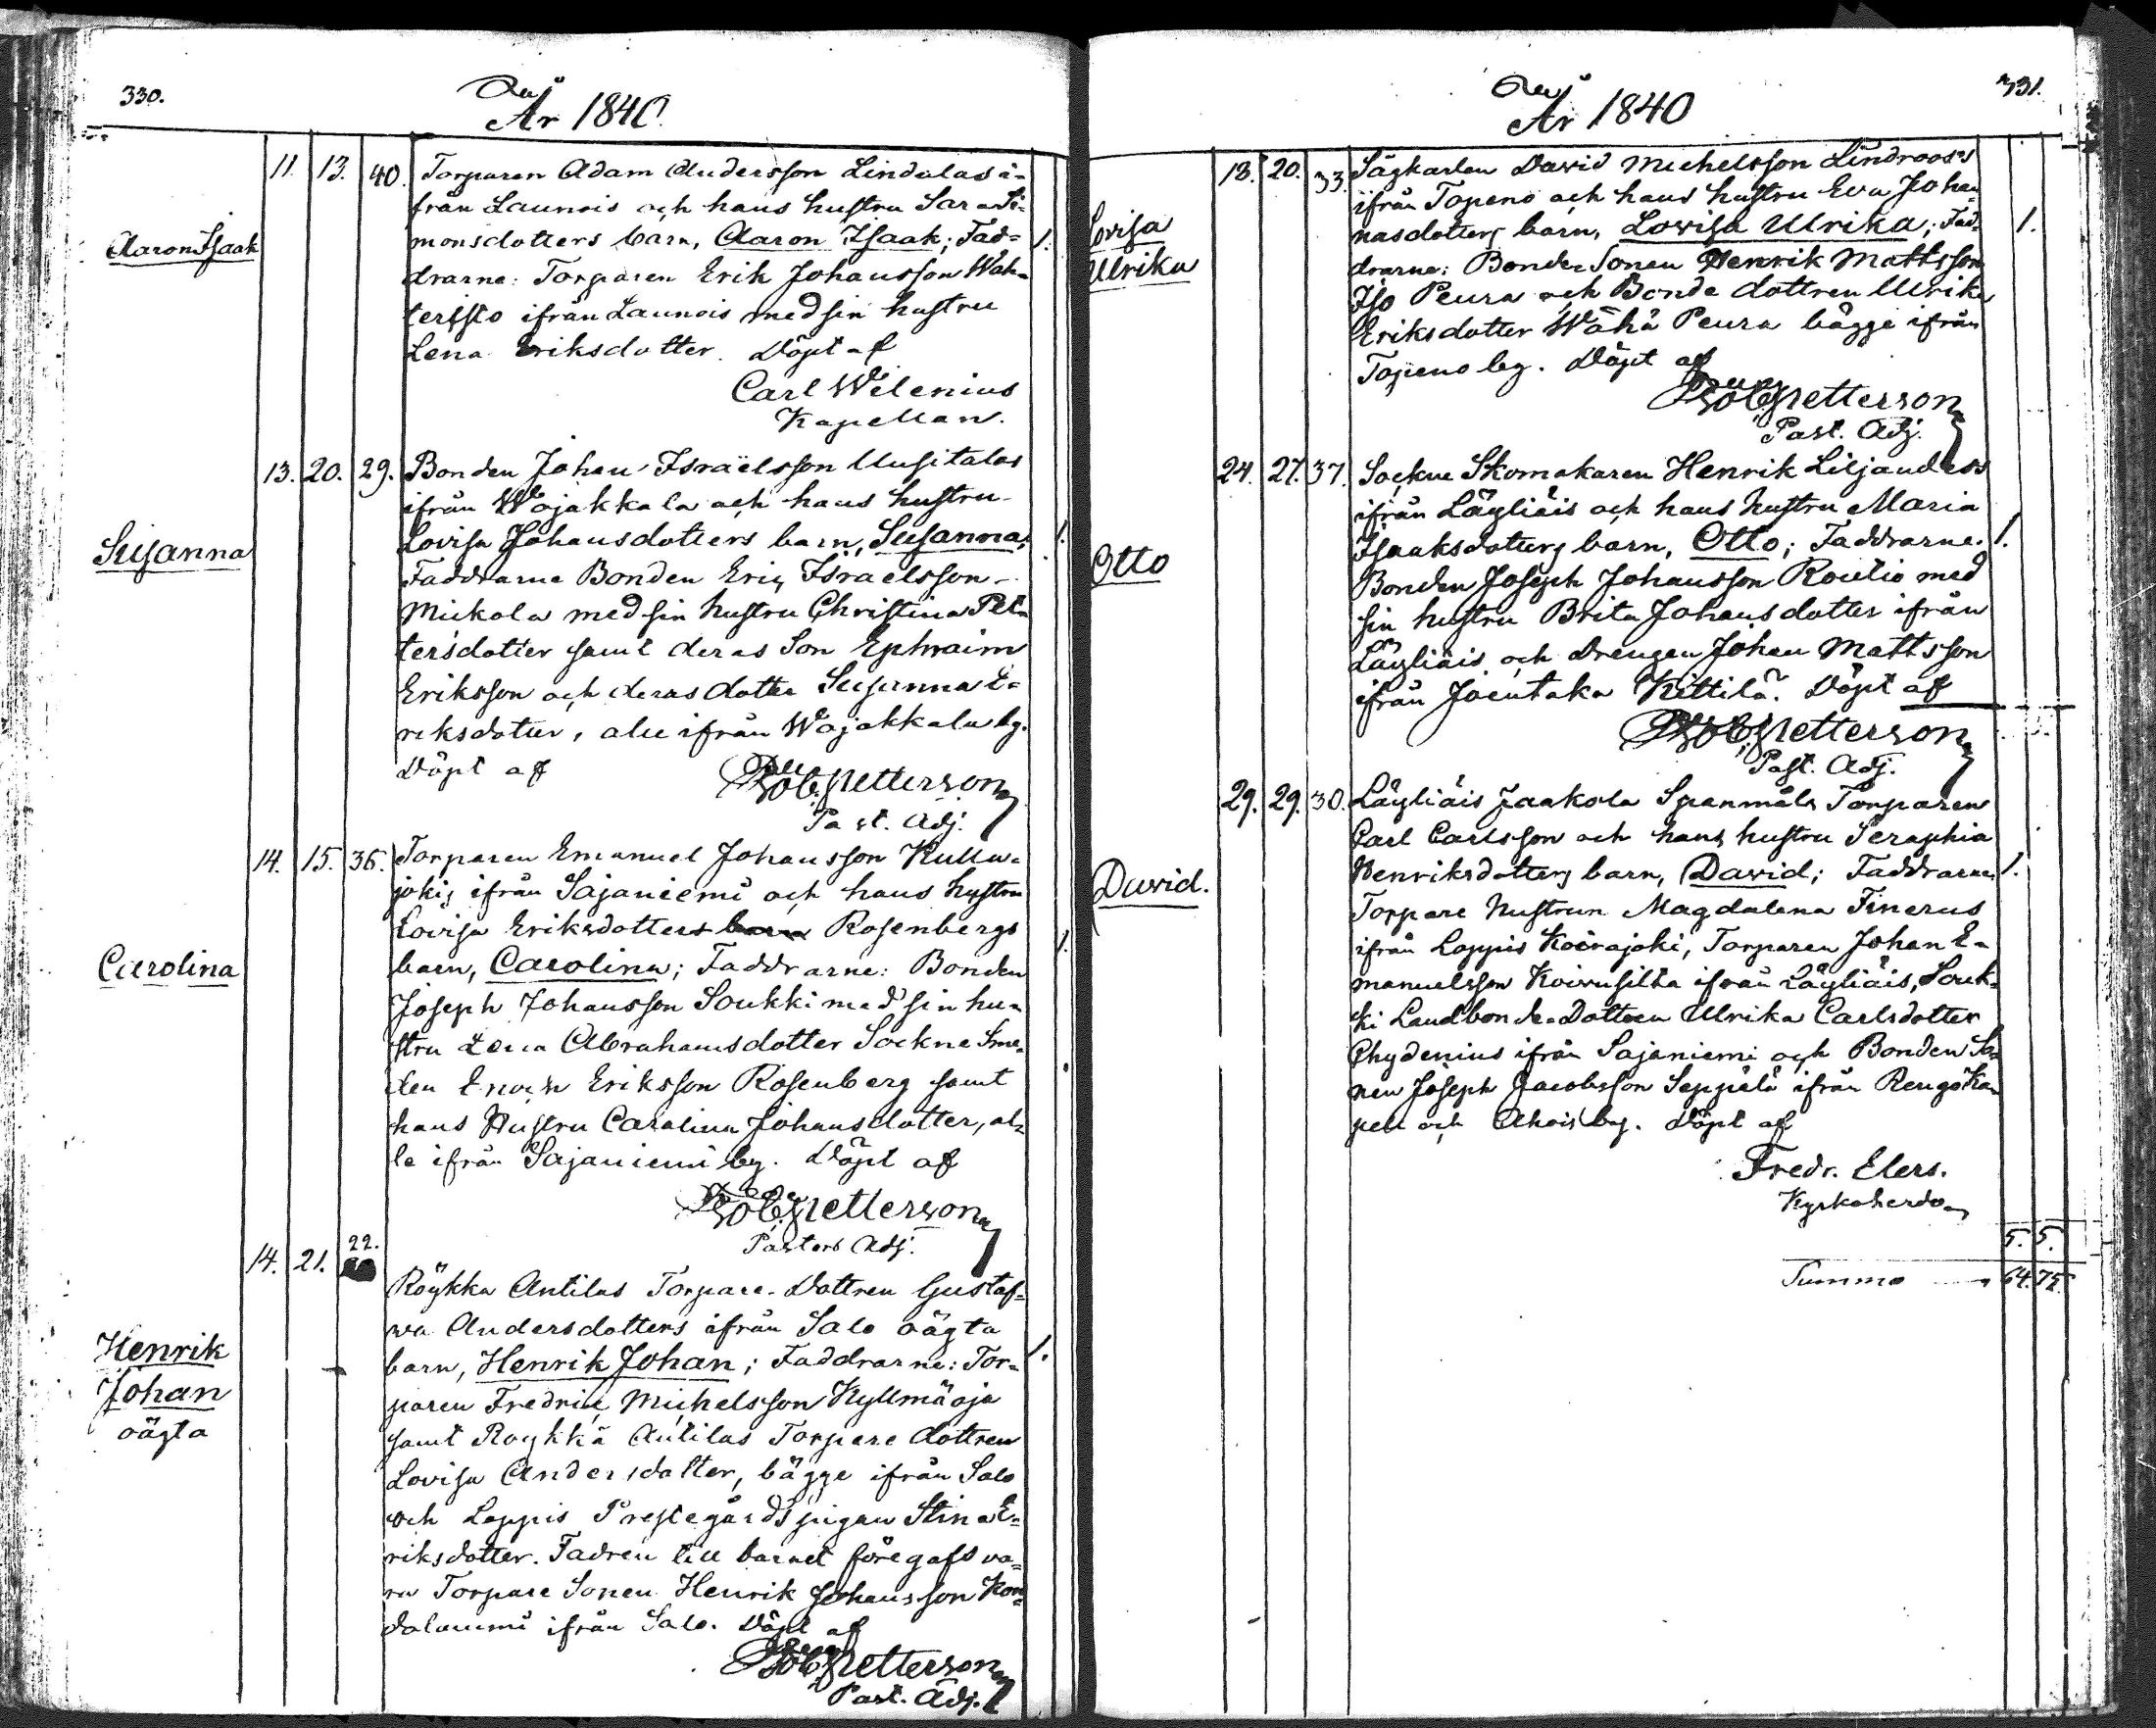 330.
År 1840.
Aaron Isaak
11. 13. 40. Torparen Adam Andersson Lindalas i-
från Launois och hans hustru Sara Si-
monsdotters barn, Aaron Isaak; Fad-
drarne: Torparen Erik Johansson Wah-
teristo ifrån Launois med sin hustru
Lena Eriksdotter. Döpt af
Carl Wilenius
Kapellan.
1.
Susanna
13. 20. 29. Bonden Johan Israëlsson Uusitalos
ifrån Wojakkala och hans hustru
Lovisa Johansdotters barn, Susanna;
Faddrarne Bonden Eric Israelsson
Mickola med sin hustru Christina Pet-
tersdotter samt deras Son Ephraim
Eriksson och deras dotter Susanna E-
riksdotter, alle ifrån Wojakkala by.
Döpt af
Petterson
Past. Adj.
1.
Carolina
14. 15. 36. Torparen Emanuel Johansson Kullu-
jokis ifrån Sajaniemi och hans hustru
Lovisa Eriksdotters barn Rosenbergs
barn, Carolina; Faddrarne: Bonden
Joseph Johansson Soukki med sin hu-
stru Lena Abrahamsdotter Sockne Sme-
den Enoch Eriksson Rosenberg samt
hans Hustru Carolina Johansdotter, al-
le ifrån Sajaniemi by. Döpt af
Petterson
Pastors Adj.
1.
Henrik
Johan
oägta
14. 21. 22.
Röykkä Antilas Torpare-Dottren Gustaf-
va Andersdotters ifrån Salo oägta
barn, Henrik Johan; Faddrarne: Tor-
paren Fredric Michelsson Kyllmäoja
samt Roykkä Antilas Torpare dottren
Lovisa Andersdotter, bägge ifrån Salo
och Loppis Prestegårds pigan Stina E-
riksdotter. Fadren till barnet föregafs va-
ra Torpare Sonen Henrik Johansson Kon-
dolammi ifrån Salo. Döpt af
Petterson
Past. Adj.
1.
331.
År 1840
Lovisa
Ulrika
18. 20. 33. Sågkarlen David Michelsson Lindroos's
ifrån Topeno och hans hustru Eva Joha-
nasdotters barn, Lovisa Ulrika; Fad-
drarne: Bonde Sonen Henrik Mattsson
Iso Peura och Bonde dottren Ulrika
Eriksdotter Wähä Peura bägge ifrån
Topeno by. Döpt af
Petterson
Past. Adj.
1.
Otto
24. 27. 37. Sockne Skomakaren Henrik Liljanders
ifrån Läyliäis och hans hustru Maria
Isaaksdotters barn, Otto; Faddrarne.
Bonden Joseph Johansson Routio med
sin hustru Brita Johansdotter ifrån
Läyliäis och Drengen Johan Mattsson
ifrån Joentaka Kittilä. Döpt af
Petterson
Past. Adj.
1.
David.
29. 29. 30. Läyliäis Jaakola Spanmåls Torparen
Carl Carlsson och hans hustru Seraphia
Henriksdotters barn, David; Faddrarne
Torpare Hustrun Magdalena Finerus
ifrån Loppis Koirajoki, Torparen Johan E-
manuelsson Koivusilta ifrån Läyliäis, Souk-
ki Landbonde Dottren Ulrika Carlsdotter
Chydenius ifrån Sajaniemi och Bonden So-
nen Joseph Jacobsson Seppälä ifrån Rengo Ka-
pell och Ahois by. Döpt af
Fredr. Elers.
Kyrkoherde
1.
5. 5.
Summa 64. 75.